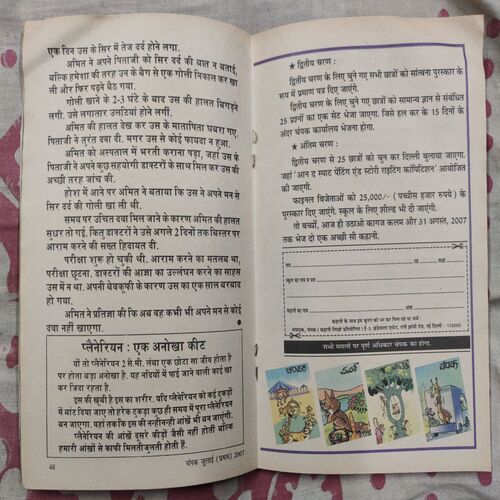 एक दिन उस के सिर में तेज दर्द होने लगा.
अमित ने अपने पिताजी को सिर दर्द की बात न बताई,
बल्कि हमेशा की तरह उन के बैग से एक गोली निकाल कर खा
ली और फिर पढ़ने बैठ गया.
गोली खाने के 2-3 घंटे के बाद उस की हालत बिगड़ने
लगी. उसे लगातार उलटियां होने लगीं.
अमित की हालत देख कर उस के मातापिता घबरा गए.
पिताजी ने तुरंत दवा दी. मगर उस से कोई फायदा न हुआ.
अमित को अस्पताल में भरती कराना पड़ा, जहां उस के
पिताजी ने अपने कुछ सहयोगी डाक्टरों के साथ मिल कर उस की
अच्छी तरह जांच की.
होश में आने पर अमित ने बताया कि उस ने अपने मन से
सिर दर्द की गोली खा ली थी.
समय पर उचित दवा मिल जाने के कारण अमित की हालत
सुधर तो गई, किंतु डाक्टरों ने उसे अगले 2 दिनों तक बिस्तर पर
आराम करने की सख्त हिदायत दी.
परीक्षा शुरू हो चुकी थी. आराम करने का मतलब था,
परीक्षा छूटना. डाक्टरों की आज्ञा का उल्लंघन करने का साहस
उस में न था. अपनी बेवकूफी के कारण उस का एक साल बरबाद
हो गया.
अमित ने प्रतिज्ञा की कि अब वह कभी भी अपने मन से कोई
दवा नहीं खाएगा.
प्लैनेरियन : एक अनोखा कीट
यों तो प्लैनेरियन 2 से.मी. लंबा एक छोटा सा जीव होता है
पर होता बड़ा अनोखा है. यह नदियों में पाई जाने वाली काई खा
कर जिंदा रहता है.
इस की खूबी है इस का शरीर. यदि प्लैनेरियन को कई टुकड़ों
में बांट दिया जाए तो हरेक टुकड़ा कुछ ही समय में पूरा प्लैनेरियन
बन जाएगा. यहां तक कि इस की नन्हीनन्ही आंखें भी बन जाएंगी.
प्लैनेरियन की आंखें दूसरे कीड़ों जैसी नहीं होतीं बल्कि
हमारी आंखों से काफी मिलतीजुलती होती हैं.
48
चंपक जुलाई (प्रथम) 2007
★ द्वितीय चरण :
द्वितीय चरण के लिए चुने गए सभी छात्रों को सांत्वना पुरस्कार के
रूप में प्रमाण पत्र दिए जाएंगे.
द्वितीय चरण के लिए चुने गए छात्रों को सामान्य ज्ञान से संबंधित
25 प्रश्नों का एक सेट भेजा जाएगा. जिसे हल कर के 15 दिनों के
अंदर चंपक कार्यालय भेजना होगा.
★ अंतिम चरण :
द्वितीय चरण से 25 छात्रों को चुन कर दिल्ली बुलाया जाएगा.
जहां 'आन द स्पाट पेंटिंग एंड स्टोरी राइटिंग कांपिटिशन' आयोजित
की जाएगी.
फाइनल विजेताओं को 25,000/- (पच्चीस हजार रुपये) के
पुरस्कार दिए जाएंगे. स्कूल के लिए शील्ड भी दी जाएगी.
तो बच्चों, आज ही उठाओ कागज कलम और 31 अगस्त, 2007
तक भेज दो एक अच्छी सी कहानी.
नाम
उम्र
कक्षा
स्कूल का नाम व पता
घर का पता
कहानी के साथ इस कूपन को भर कर निम्न पते पर भेजें :
संपादक, चंपक (कहानी लिखो प्रतियोगिता) ई-3, झंडेवाला एस्टेट, रानी झांसी रोड, नई दिल्ली - 110055.
सभी मामलों पर पूर्ण अधिकार चंपक का होगा.
चंपक